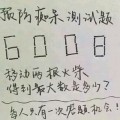 预防痴呆测试题
6008
移动两根火柴
得到最大数是多少?
当人只有一次答题机会!